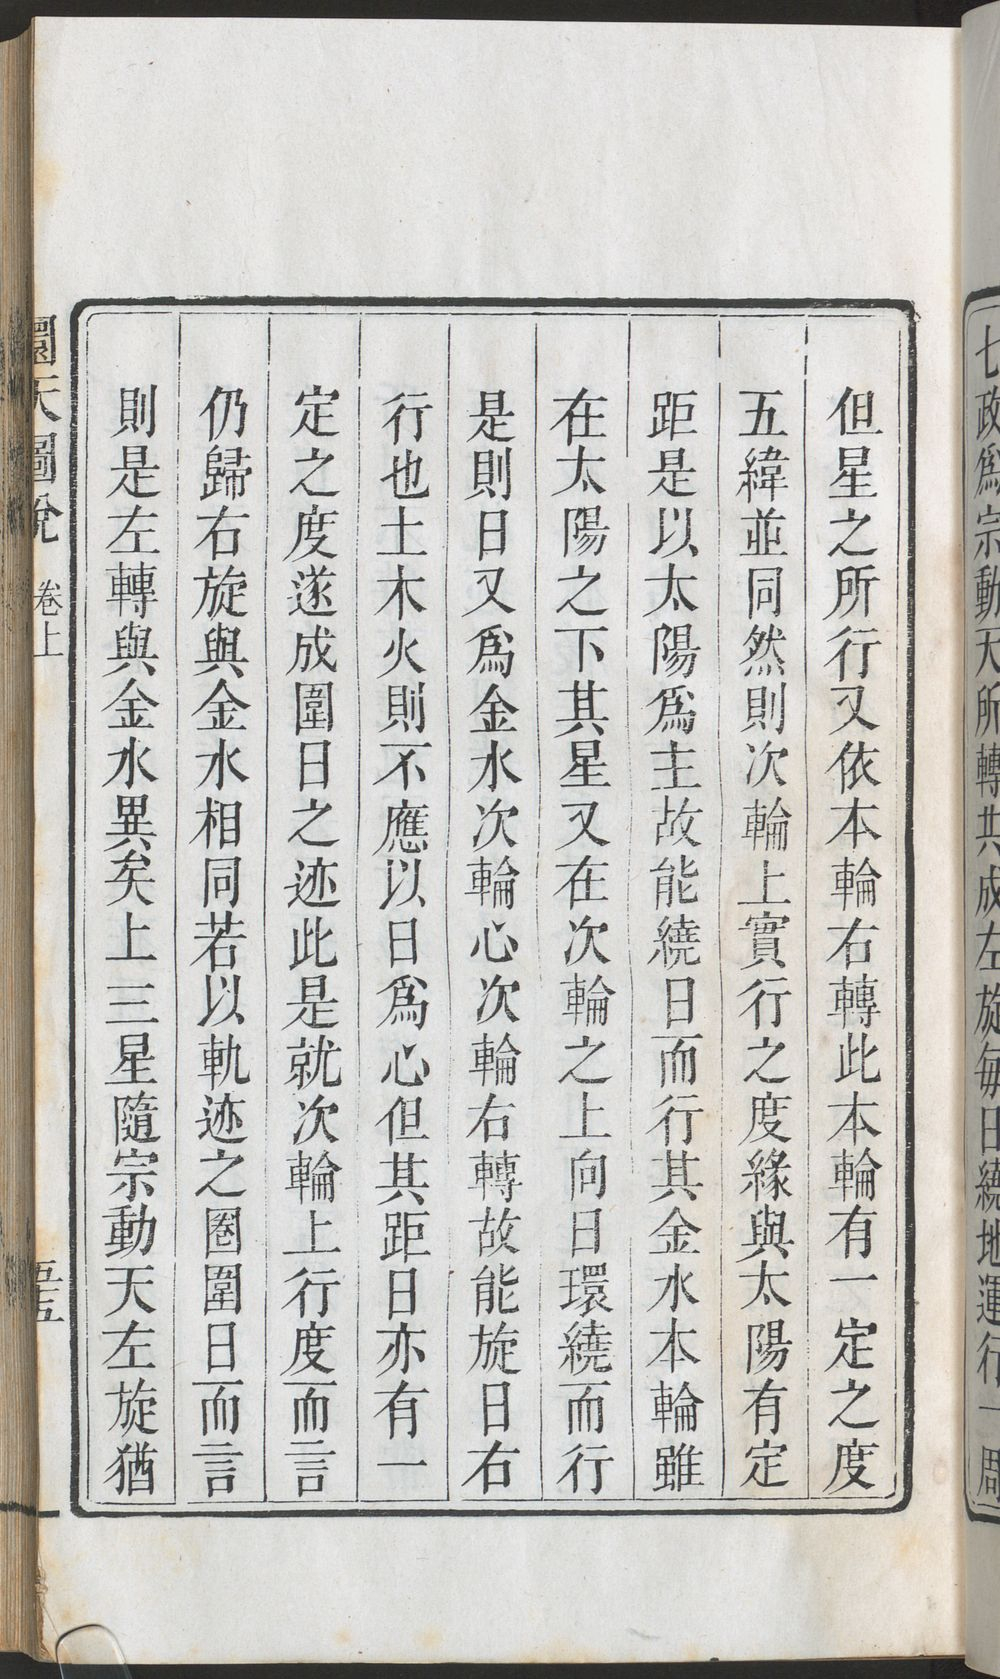 七政爲宗動天所轉共成左旋每日繞地運行一周
但星之所行又依本輪右轉此本輪有一定之度
五緯並同然則次輪上實行之度緣與太陽有定
距是以太陽爲主故能繞日而行其金水本輪雖
在太陽之下其星又在次輪之上向日環繞而行
是則日又爲金水次輪心次輪右轉故能旋日右
行也土木火則不應以日爲心但其距日亦有一
定之度遂成圍日之迹此是就次輪上行度而言
仍歸右旋與金水相同若以軌迹之圈圍日而言
則是左轉與金水異矣上三星隨宗動天左旋猶
圜天圖說 卷上 五五